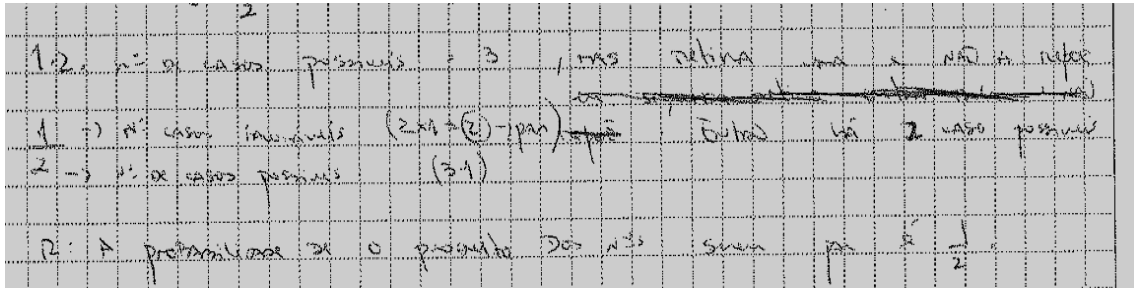 2
1.2. nº de casos possíveis = 3 , mas retira uma e NÃO a repõe
1 → Nº casos favoráveis (2×1=2)→par) Então há 2 caso possíveis
2 → nº de casos possíveis (3-1)
R: A probabilidade de o produto dos nºs serem par é 1/2.